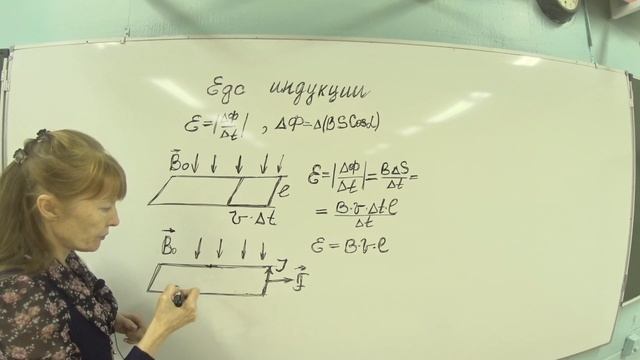 Едс индукции
ℰ=|ΔФ/Δt| , ΔФ=Δ(BSCosα)
B⃗₀
ℓ
v·Δt
ℰ=|ΔФ/Δt|=BΔS/Δt=
=B·v·Δt·ℓ/Δt
ℰ=B·v·ℓ
B⃗₀
J